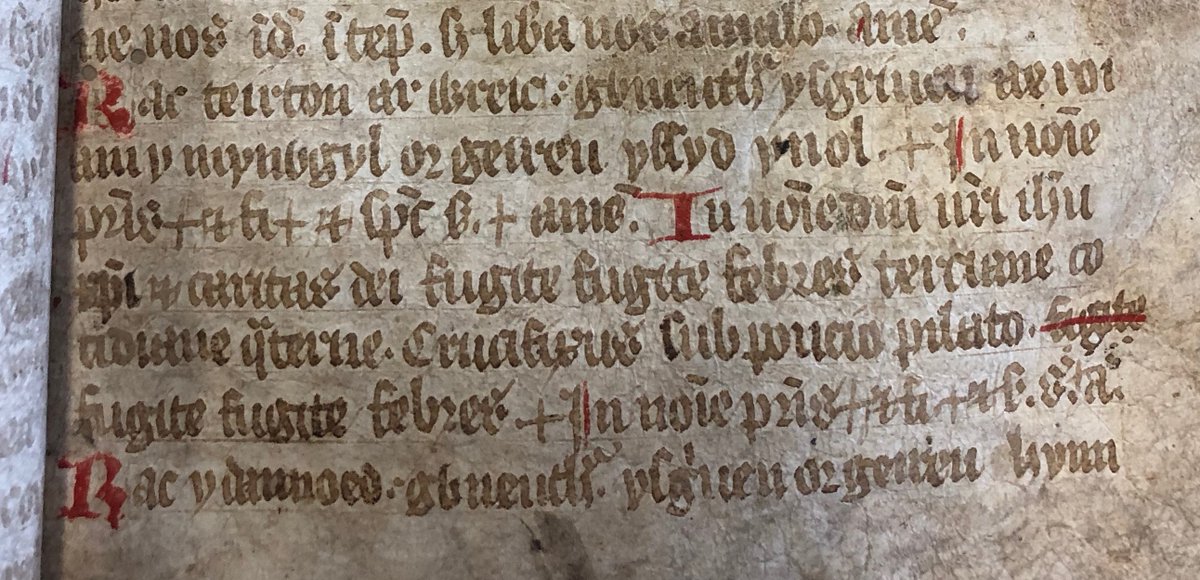 ne nos īd. ītēp. s. liba nos a malo. amē.
Rac teirton ar wreic. gwneuthᷣ ysgriuen ae roi
am y mynwgyl or geireu yssyd yn ol. + In noīe
pr̄is + ⁊ fi + ⁊ sp̄c s. + amē. In noīe dn̄i nr̄i ihū
xp̄i ⁊ caritas dei fugite fugite febres terciane co
tidiane q̄terne. Crucifixus sub poncio pilato. fugite
fugite fugite febres + In noīe pr̄is + ⁊ fi + ⁊ s. sc̄tā.
Rac y dannoed. gwneuthᷣ. ysgͥuen or geireu hynn